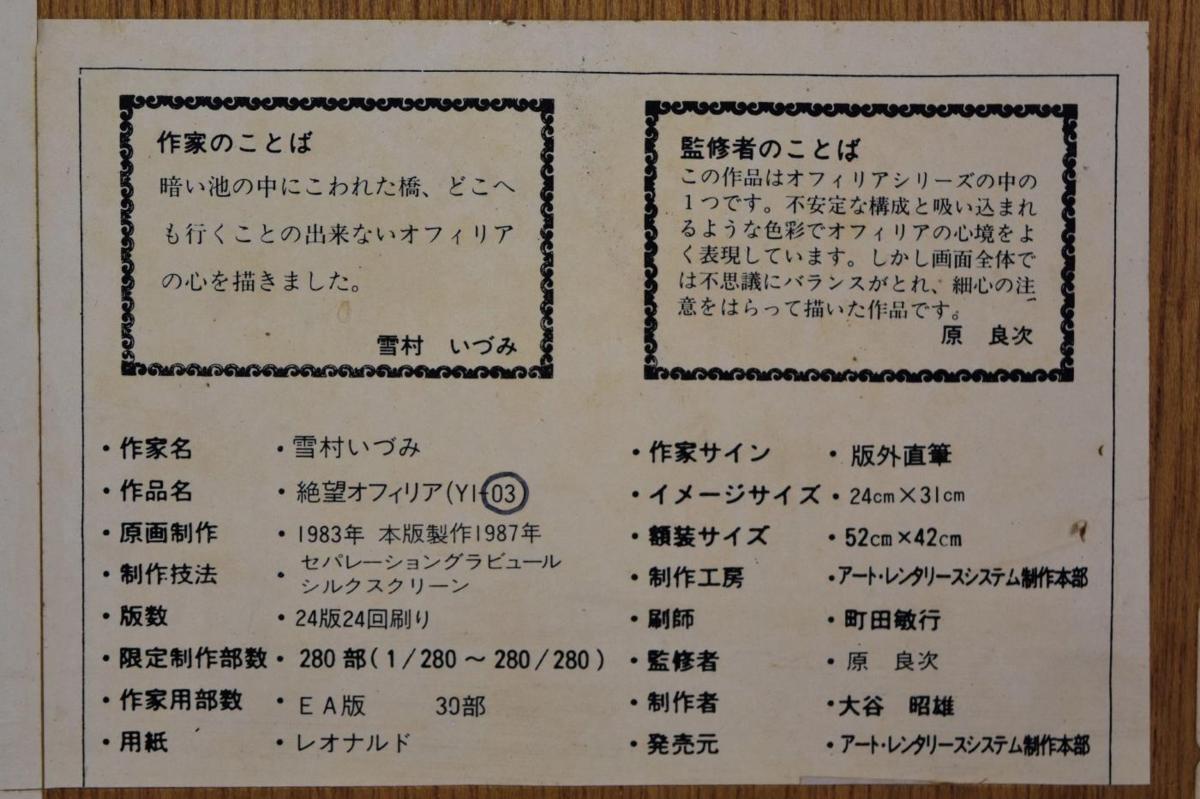 作家のことば
暗い池の中にこわれた橋、どこへ
も行くことの出来ないオフィリア
の心を描きました。
雪村 いづみ
監修者のことば
この作品はオフィリアシリーズの中の
1つです。不安定な構成と吸い込まれ
るような色彩でオフィリアの心境をよ
く表現しています。しかし画面全体で
は不思議にバランスがとれ、細心の注
意をはらって描いた作品です。
原 良次
・作家名 ・雪村いづみ
・作品名 ・絶望オフィリア(YI-03)
・原画制作 ・1983年 本版製作1987年
・制作技法 ・セパレーショングラビュール
シルクスクリーン
・版数 ・24版24回刷り
・限定制作部数 ・280部(1/280~280/280)
・作家用部数 ・EA版 30部
・用紙 ・レオナルド
・作家サイン ・版外直筆
・イメージサイズ ・24cm×31cm
・額装サイズ ・52cm×42cm
・制作工房 ・アート・レンタリースシステム制作本部
・刷師 ・町田敏行
・監修者 ・原 良次
・制作者 ・大谷 昭雄
・発売元 ・アート・レンタリースシステム制作本部